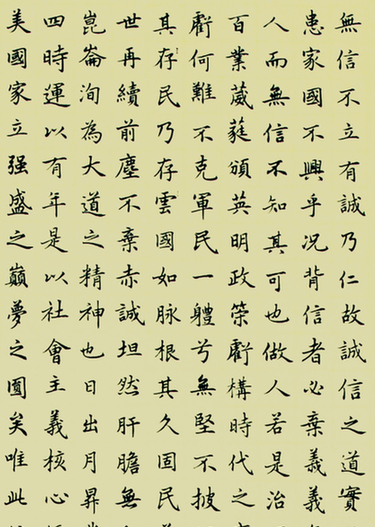 無信不立有誠乃仁故誠信之道實
患家國不興乎況背信者必棄義義
人而無信不知其可也做人若是治
百業葳蕤頒英明政策虧構時代之
虧何難不克軍民一軆兮無堅不披
其存民乃存雲國如脉根其久固民
世再續前塵不棄赤誠坦然肝膽無
崑崙洵為大道之精神也日出月昇
四時運以有年是以社會主義核心
美國家立强盛之巔夢之圓矣唯此